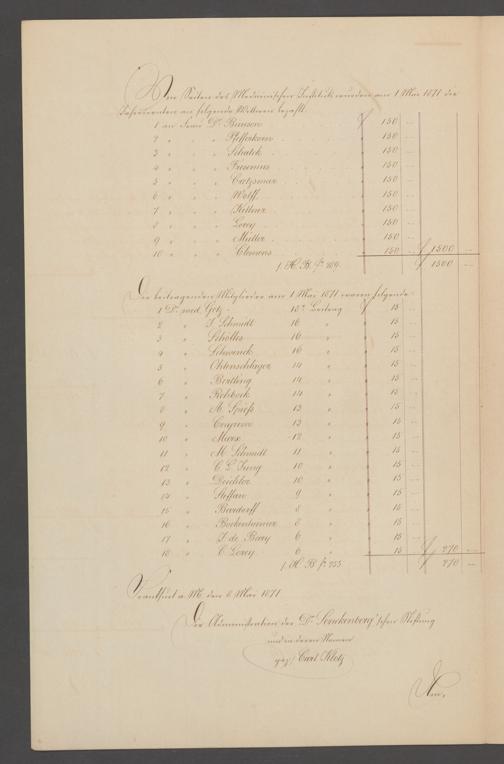 Von Seiten des Medicinischen Instituts wurden am 1 Mai 1871 die
Jahresrenten an folgende Wittwen bezahlt.
1 an Frau Dr Bunsen f 150 ...
2 " " " Pfefferkorn " 150 ...
3 " " " " 150 ...
4 " " " Fresenius " 150 ...
5 " " " " 150 ...
6 " " " Wolff " 150 ...
7 " " " Kellner " 150 ...
8 " " " Lorey " 150 ...
9 " " " Müller " 150 ...
10 " " " Clemens " 150 ... f 1500 ...
f 1500 ...
Die beitragenden Mitglieder am 1 Mai 1871 waren folgende
1 Dr med Götz 18r Beitrag f 15 ...
2 " " 16 " " 15 ...
3 " Scholles 16 " " 15 ...
4 " Schwenck 16 " " 15 ...
5 " Ohlenschlager 14 " " 15 ...
6 " 14 " " 15 ...
7 " 14 " " 15 ...
8 " Spiess 13 " " 15 ...
9 " 13 " " 15 ...
10 " Marx 12 " " 15 ...
11 " M. Schmidt 11 " " 15 ...
12 " Jung 10 " " 15 ...
13 " 10 " " 15 ...
14 " Steffan 9 " " 15 ...
15 " Bardorff 8 " " 15 ...
16 " Bockenheimer 8 " " 15 ...
17 " J. de Bary 6 " " 15 ...
18 " C. Lorey 6 " " 15 ... f 270 ...
f 270 ...
Frankfurt a. M. den 8 Mai 1871
Die Administration der Dr Senckenberg'schen Stiftung
und in deren Namen
gez. Carl Klotz